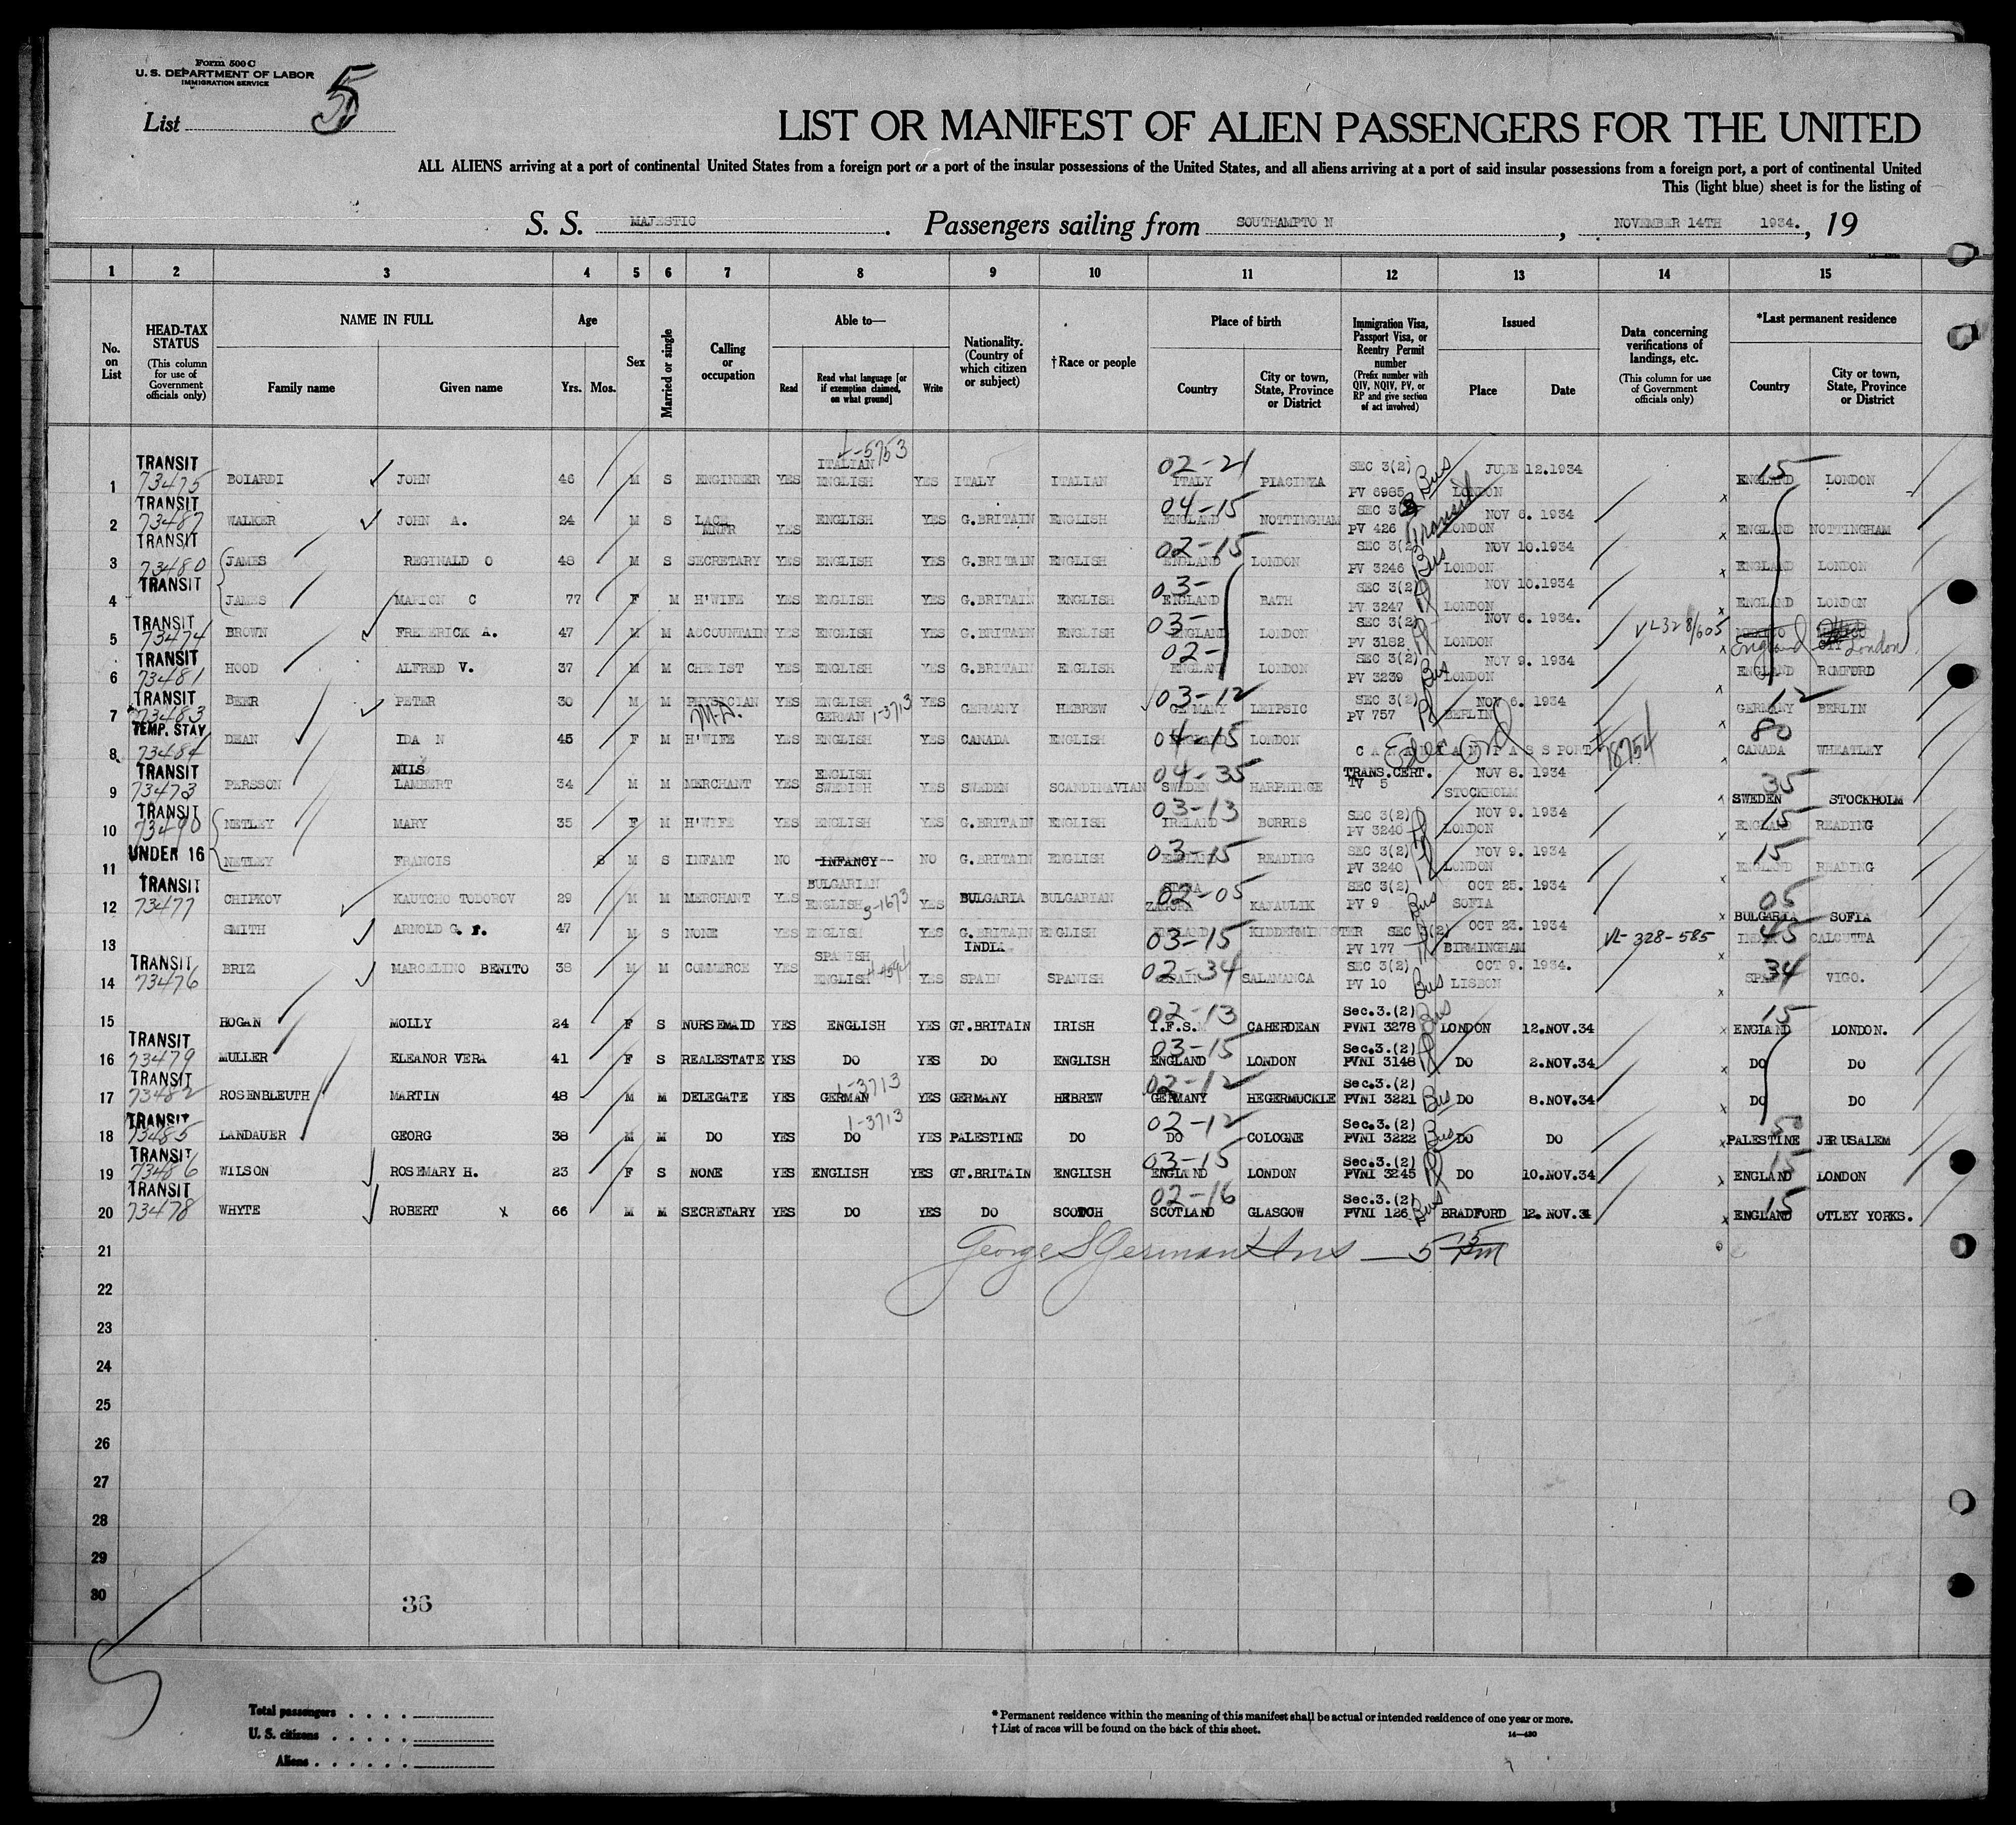 Form 500 C
U. S. DEPARTMENT OF LABOR
IMMIGRATION SERVICE
List 5
LIST OR MANIFEST OF ALIEN PASSENGERS FOR THE UNITED
ALL ALIENS arriving at a port of continental United States from a foreign port or a port of the insular possessions of the United States, and all aliens arriving at a port of said insular possessions from a foreign port, a port of continental United
This (light blue) sheet is for the listing of
S. S. MAJESTIC. Passengers sailing from SOUTHAMPTO N, NOVEMBER 14TH 1934., 19
1 2 3 4 5 6 7 8 9 10 11 12 13 14 15
No. on List
HEAD-TAX STATUS (This column for use of Government officials only)
NAME IN FULL Family name Given name
Age Yrs. Mos.
Sex
Married or single
Calling or occupation
Able to— Read Read what language [or if exemption claimed, on what ground] Write
Nationality. (Country of which citizen or subject)
†Race or people
Place of birth Country City or town, State, Province or District
Immigration Visa, Passport Visa, or Reentry Permit number (Prefix number with QIV, NQIV, PV, or RP and give section of act involved)
Issued Place Date
Data concerning verifications of landings, etc. (This column for use of Government officials only)
*Last permanent residence Country City or town, State, Province or District
1 TRANSIT 73475 BOIARDI JOHN 46 M S ENGINEER YES ITALIAN ENGLISH 4-5753 YES ITALY ITALIAN 02-21 ITALY PIACINZA SEC 3(2) PV 6985 Bus LONDON JUNE 12.1934 15 ENGLAND LONDON
2 TRANSIT 73487 WALKER JOHN A. 24 M S LACE MNFR YES ENGLISH YES G.BRITAIN ENGLISH 04-15 ENGLAND NOTTINGHAM SEC 3 PV 426 Transit LONDON NOV 6. 1934 ENGLAND NOTTINGHAM
3 TRANSIT 73480 JAMES REGINALD O 48 M S SECRETARY YES ENGLISH YES G.BRITAIN ENGLISH 02-15 ENGLAND LONDON SEC 3(2) PV 3246 Bus LONDON NOV 10.1934 ENGLAND LONDON
4 TRANSIT JAMES MARION C 77 F M H'WIFE YES ENGLISH YES G.BRITAIN ENGLISH 03- ENGLAND BATH SEC 3(2) PV 3247 Pl LONDON NOV 10.1934 ENGLAND LONDON
5 TRANSIT 73474 BROWN FREDERICK A. 47 M M ACCOUNTAIN YES ENGLISH YES G.BRITAIN ENGLISH 03- ENGLAND LONDON SEC 3(2) PV 3182 Pl LONDON NOV 6. 1934. VL328/605 England London
6 TRANSIT 73481 HOOD ALFRED V. 37 M M CHEMIST YES ENGLISH YES G.BRITAIN ENGLISH 02- ENGLAND LONDON SEC 3(2) PV 3239 Bus LONDON NOV 9. 1934 ENGLAND ROMFORD
7 TRANSIT 73483 BEER PETER 30 M M PHYSICIAN M.D. YES ENGLISH GERMAN 1-3713 YES GERMANY HEBREW 03-12 GERMANY LEIPSIC SEC 3(2) PV 757 Pl BERLIN NOV 6. 1934 12 GERMANY BERLIN
8 TEMP. STAY 73484 DEAN IDA N 45 F M H'WIFE YES ENGLISH YES CANADA ENGLISH 04-15 ENGLAND LONDON CANADIAN PASSPORT 78754 80 CANADA WHEATLEY
9 TRANSIT 73473 PERSSON NILS LAMBERT 34 M M MERCHANT YES ENGLISH SWEDISH YES SWEDEN SCANDINAVIAN 04-35 SWEDEN HARPHINGE TRANS.CERT. TV 5 STOCKHOLM NOV 8. 1934 35 SWEDEN STOCKHOLM
10 TRANSIT 73490 NETLEY MARY 35 F M H'WIFE YES ENGLISH YES G.BRITAIN ENGLISH 03-13 IRELAND BORRIS SEC 3(2) PV 3240 Pl LONDON NOV 9. 1934 15 ENGLAND READING
11 UNDER 16 NETLEY FRANCIS 8 M S INFANT NO INFANCY-- NO G.BRITAIN ENGLISH 03-15 ENGLAND READING SEC 3(2) PV 3240 Pl LONDON NOV 9. 1934 15 ENGLAND READING
12 TRANSIT 73477 CHIPKOV KAUTCHO TODOROV 29 M M MERCHANT YES BULGARIAN ENGLISH 3-1673 YES BULGARIA BULGARIAN 02-05 STARA ZAGORA KAZAULIK SEC 3(2) PV 9 Bus SOFIA OCT 25. 1934 05 BULGARIA SOFIA
13 SMITH ARNOLD G. F. 47 M S NONE YES ENGLISH YES G.BRITAIN INDIA ENGLISH 03-15 ENGLAND KIDDERMINISTER SEC 3(2) PV 177 Pl BIRMINGHAM OCT 23. 1934 VL-328-585 45 INDIA CALCUTTA
14 TRANSIT 73476 BRIZ MARCELINO BENITO 38 M M COMMERCE YES SPANISH ENGLISH YES SPAIN SPANISH 02-34 SPAIN SALAMANCA SEC 3(2) PV 10 Bus LISBON OCT 9. 1934. 34 SPAIN VIGO.
15 HOGAN MOLLY 24 F S NURSEMAID YES ENGLISH YES GT.BRITAIN IRISH 02-13 I.F.S. CAHERDEAN Sec.3.(2) PVNI 3278 Bus LONDON 12.NOV.34 15 ENGLAND LONDON.
16 TRANSIT 73479 MULLER ELEANOR VERA 41 F S REALESTATE YES DO YES DO ENGLISH 03-15 ENGLAND LONDON Sec.3.(2) PVNI 3148 Pl DO 2.NOV.34 DO DO
17 TRANSIT 73482 ROSENBLEUTH MARTIN 48 M M DELEGATE YES GERMAN 1-3713 YES GERMANY HEBREW 02-12 GERMANY HEGERMUCKLE Sec.3.(2) PVNI 3221 Bus DO 8.NOV.34 DO DO
18 TRANSIT 73485 LANDAUER GEORG 38 M M DO YES DO 1-3713 YES PALESTINE DO 02-12 DO COLOGNE Sec.3.(2) PVNI 3222 Bus DO DO 50 PALESTINE JERUSALEM
19 TRANSIT 73486 WILSON ROSEMARY H. 23 F S NONE YES ENGLISH YES GT.BRITAIN ENGLISH 03-15 ENGLAND LONDON Sec.3.(2) PVNI 3245 Pl DO 10.NOV.34 15 ENGLAND LONDON
20 TRANSIT 73478 WHYTE ROBERT X 66 M M SECRETARY YES DO YES DO SCOTCH 02-16 SCOTLAND GLASGOW Sec.3.(2) PVNI 126 Bus BRADFORD 12. NOV.34 15 ENGLAND OTLEY YORKS.
21 George S German Ins — 5 15 pm
22
23
24
25
26
27
28
29
30
36
Total passengers . . . .
U. S. citizens . . . . .
Aliens . . . . . .
* Permanent residence within the meaning of this manifest shall be actual or intended residence of one year or more.
† List of races will be found on the back of this sheet.
14—430